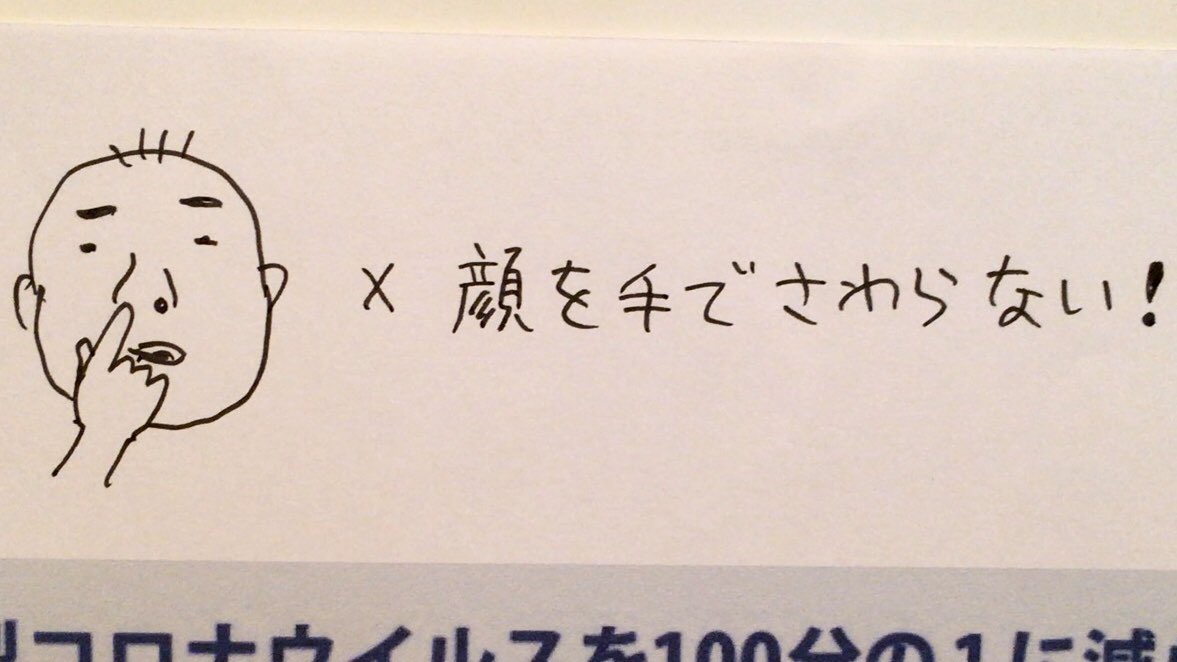 × 顔を手でさわらない!
型コロナウイルスを100分の1に減